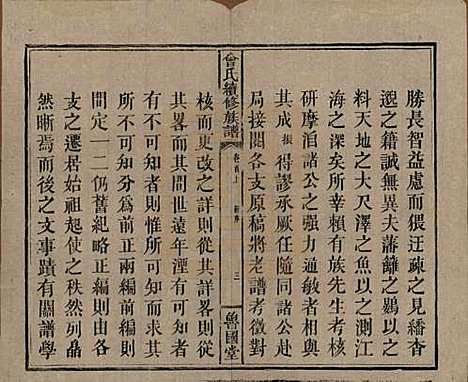 勝長智益慮而猥迂疎之見繙杳
邈之籍誠無異夫藩籬之鷃以之
料天地之大尺澤之魚以之測江
海之深矣所幸賴有族先生考核
研摩洎諸公之强力過敏者相與
其成振得謬承厥任隨同諸公赴
局接閱各支原稿將老譜考徵對
曾氏續修族譜
卷首上 新序 三
魯國堂
核而更改之詳則從其詳畧則從
其畧而其間世遠年湮有可知而
有不可知者於可知而求其
所不可知分為前正兩編前則由
間定一二仍舊紀略正編則由各
支之遷居始祖起使之秩然列晶
然晰焉而後之文事蹟有關譜學